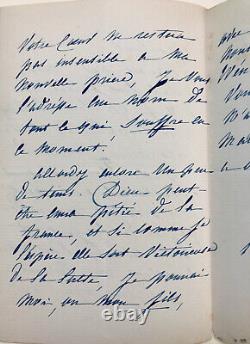 Votre Coeur ne restera
pas insensible a ma
nouvelle prière, Je Vous
l'adresse au nom de
tout ce qui, Souffre en
ce moment.
attendez encore Un peu
de tems. Dieu peut-
être aura pitié de la
france, et si comme je
l'espère elle sort Victorieuse
de la lutte, Je pourrai
moi, ou mon fils,